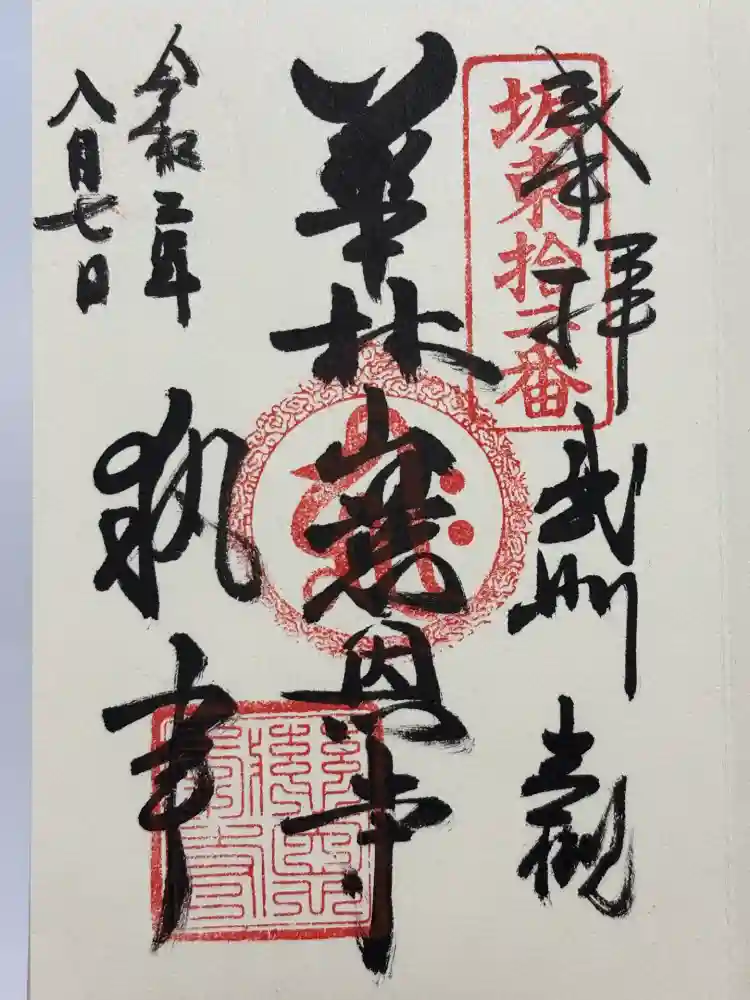 奉拝
坂東拾二番
武州
岩槻
華林山慈恩寺
執事
令和二年
八月七日